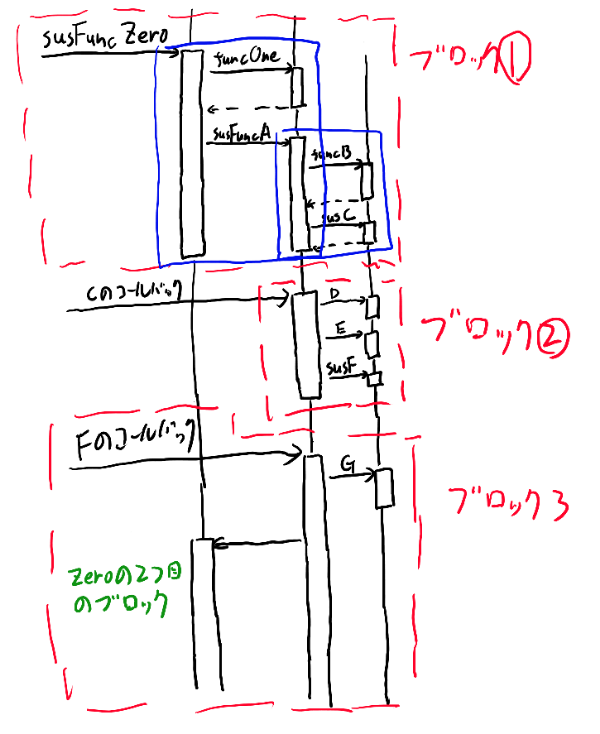 susFuncZero
funcOne
ブロック①
susFuncA
funcB
susC
Cのコールバック
D
E
susF
ブロック②
Fのコールバック
G
ブロック3
Zeroの2つ目
のブロック